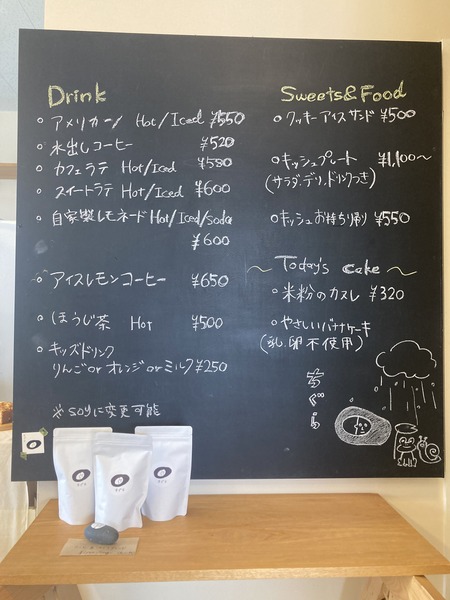 Drink
・アメリカーノ Hot/Iced ¥550
・水出しコーヒー ¥520
・カフェラテ Hot/Iced ¥580
・スイートラテ Hot/Iced ¥600
・自家製レモネード Hot/Iced/Soda
¥600
・アイスレモンコーヒー ¥650
・ほうじ茶 Hot ¥500
・キッズドリンク
りんご or オレンジ or ミルク ¥250
※ soyに変更可能
Sweets&Food
・クッキーアイスサンド ¥500
・キッシュプレート ¥1,100〜
(サラダ、デリ、ドリンクつき)
・キッシュお持ち帰り ¥550
〜 Today's cake 〜
・米粉のカヌレ ¥320
・やさしいバナナケーキ
(乳、卵不使用)